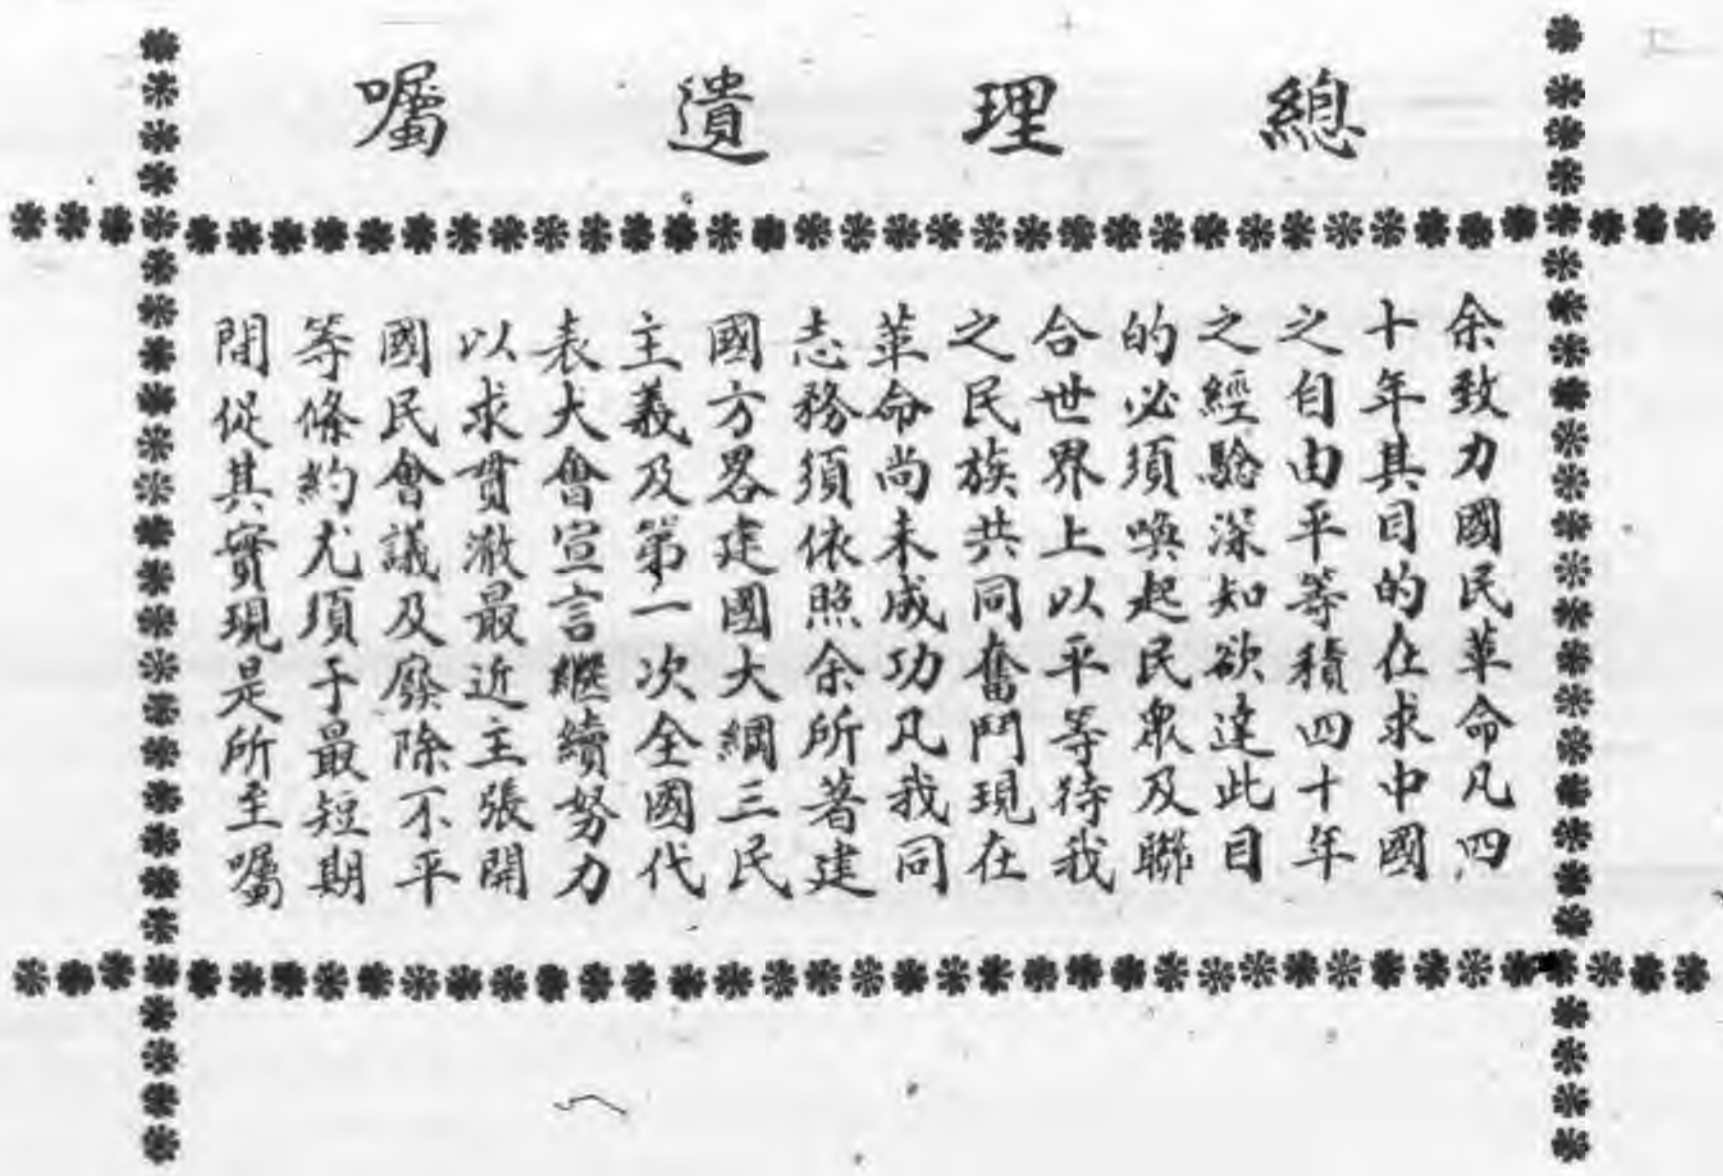 總理遺囑
余致力國民革命凡四
十年其目的在求中國
之自由平等積四十年
之經驗深知欲達此目
的必須喚起民衆及聯
合世界上以平等待我
之民族共同奮鬥現在
革命尚未成功凡我同
志務須依照余所著建
國方畧建國大綱三民
主義及第一次全國代
表大會宣言繼續努力
以求貫澈最近主張開
國民會議及廢除不平
等條約尤須于最短期
間從其實現是所至囑